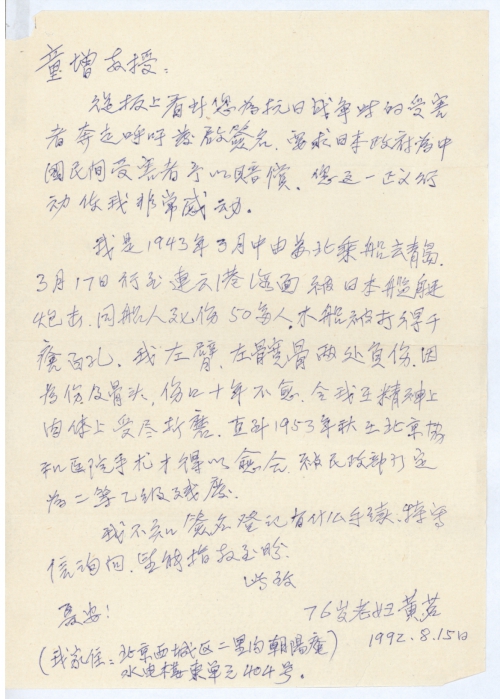 童增教授:
从报上看到,您为抗日战争时的受害
者奔走呼吁并发起签名,要求日本政府为中
國民间受害者予以赔償。您这一正义行
动使我非常感动。
我是1943年3月中由苏北乘船去青岛,
3月17日行至連云港海面被日本艦艇
炮击,同船人死伤50多人。木船被打得千
瘡百孔。我左臂、左髋骨两处负伤,因
为伤及骨头,伤口十年不愈,令我在精神上
肉体上受尽折磨。直到1953年秋在北京协
和医院手术才得以愈合。被民政部门定
为二等乙级残废。
我不知签名登记有什么手续,特写
信询问,望能指教至盼。
此致
夏安!
76岁老妇黄茗
1992.8.15日
(我家住:北京西城区二里沟朝陽庵
水电楼東单元404号。)